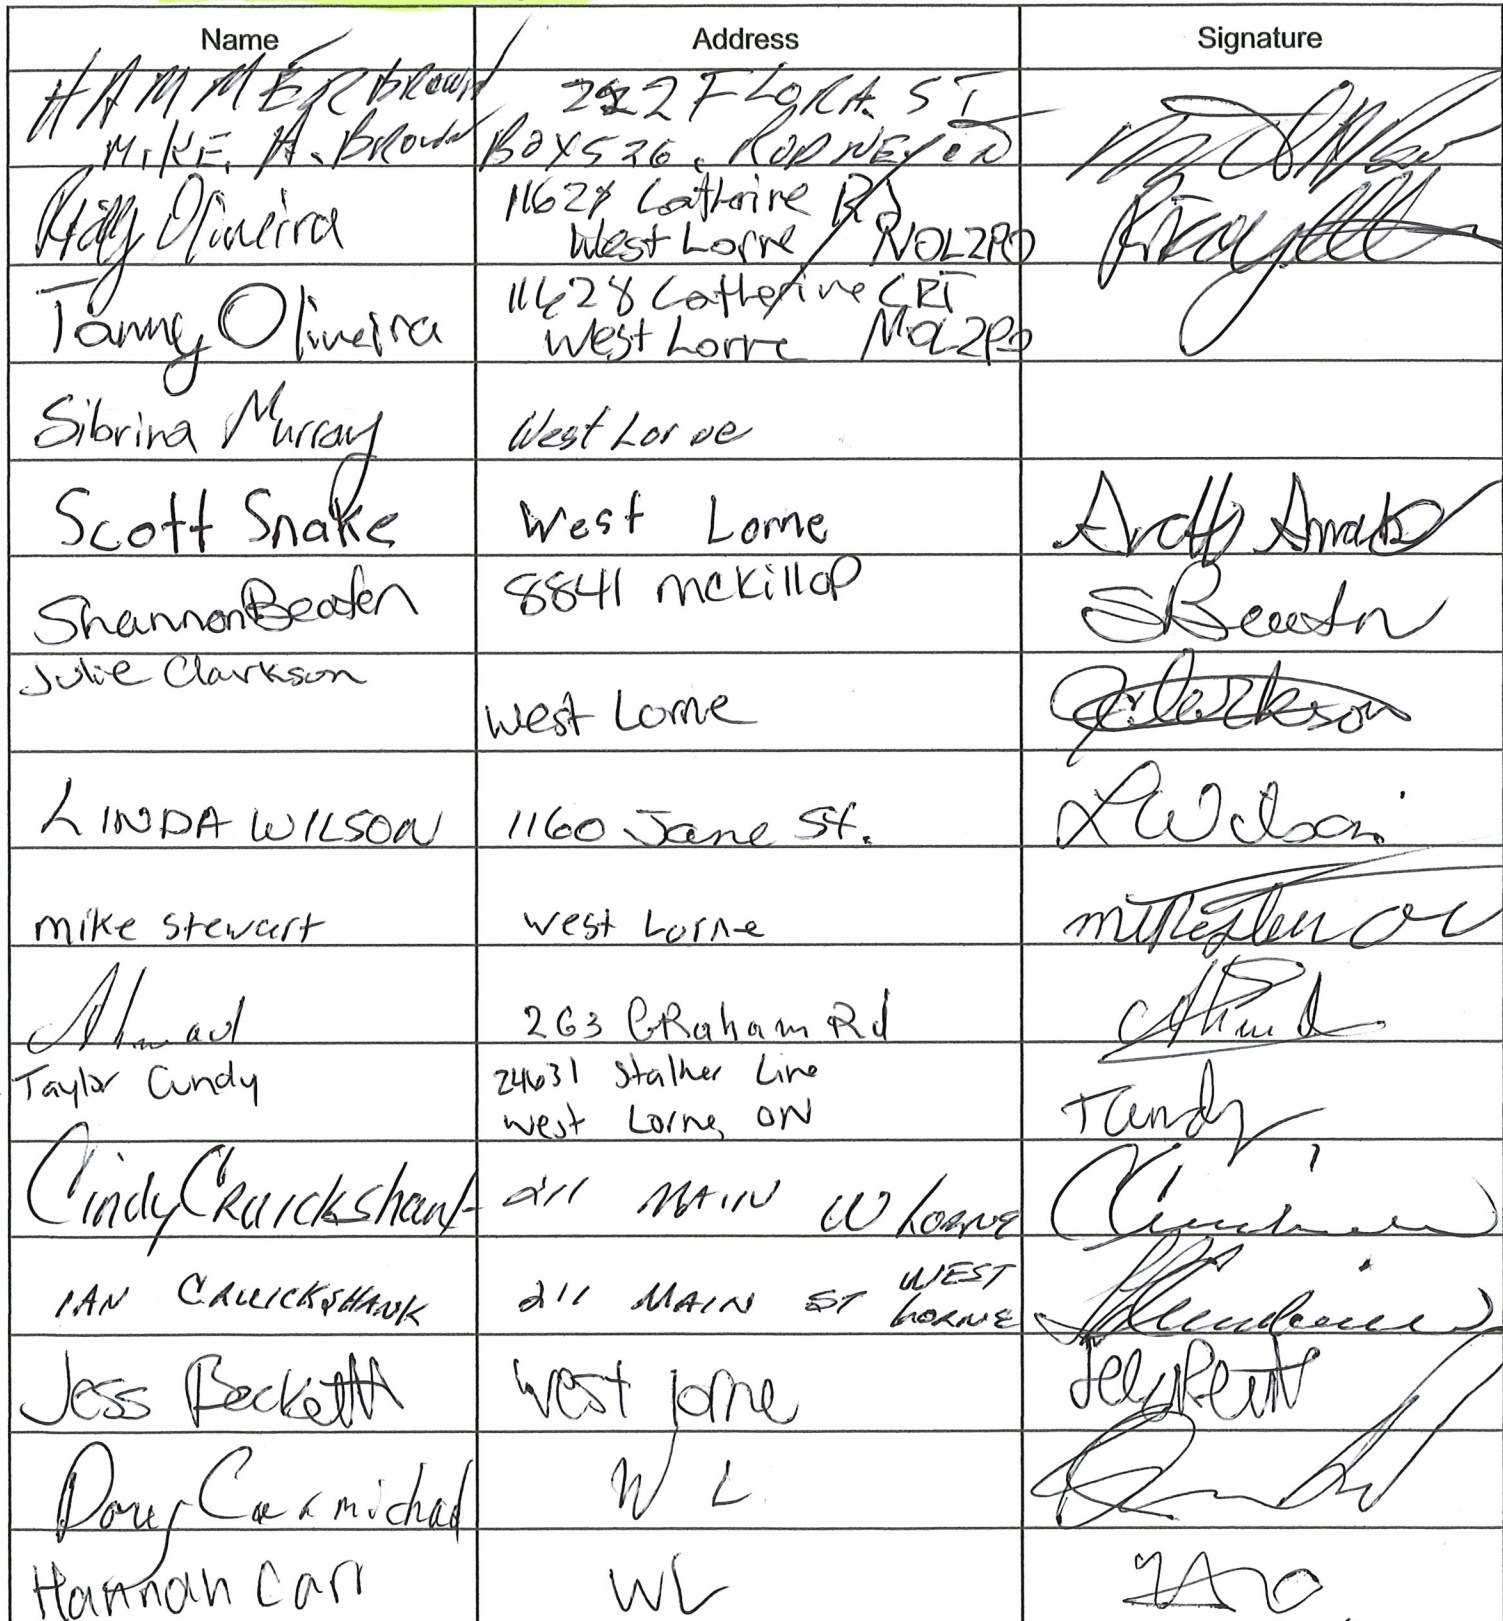 Name Address Signature
HAMMER BROWN 222 FLORA. ST
MIKE. A. BROWN BOX 526. RODNEY ON
Oliveira 11628 Catherine
West Lorne N0L2P0
Tammy Oliveira 11628 Catherine CRT
West Lorne N0L2P0
Sibrina Murray West Lorne
Scott Snake West Lorne
Shannon Beaten 8841 McKillop SBeaten
Julie Clarkson
West Lorne JClarkson
LINDA WILSON 1160 Jane St. L Wilson
mike stewart west Lorne
Ahmad 263 GRaham Rd
Taylor Cundy 24631 Stalker Line
West Lorne, ON TCundy
Cindy CRuickshank 211 MAIN W LORNE
IAN CRUICKSHANK 211 MAIN ST WEST
LORNE
Jess Beckett West lorne
Doug Carmichael W L
Hannah Carr WL